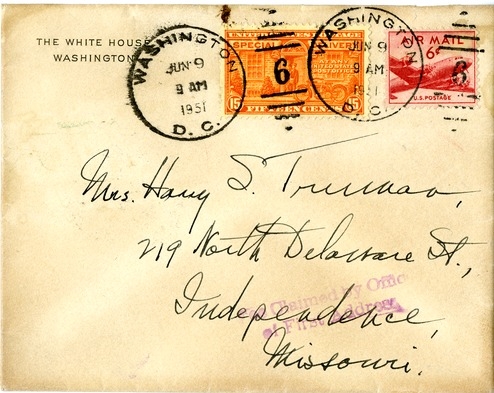 THE WHITE HOUSE
WASHINGTON
WASHINGTON
JUN 9
9 AM
1951
D. C.
UNITED STATES POSTAGE
SPECIAL DELIVERY
6
15 FIFTEEN CENTS 15
WASHINGTON
JUN 9
9 AM
1951
D. C.
AIR MAIL
6¢
6
U.S. POSTAGE
Mrs. Harry S. Truman,
219 North Delaware St.,
Independence,
Missouri.
Claimed by Office
of First Address